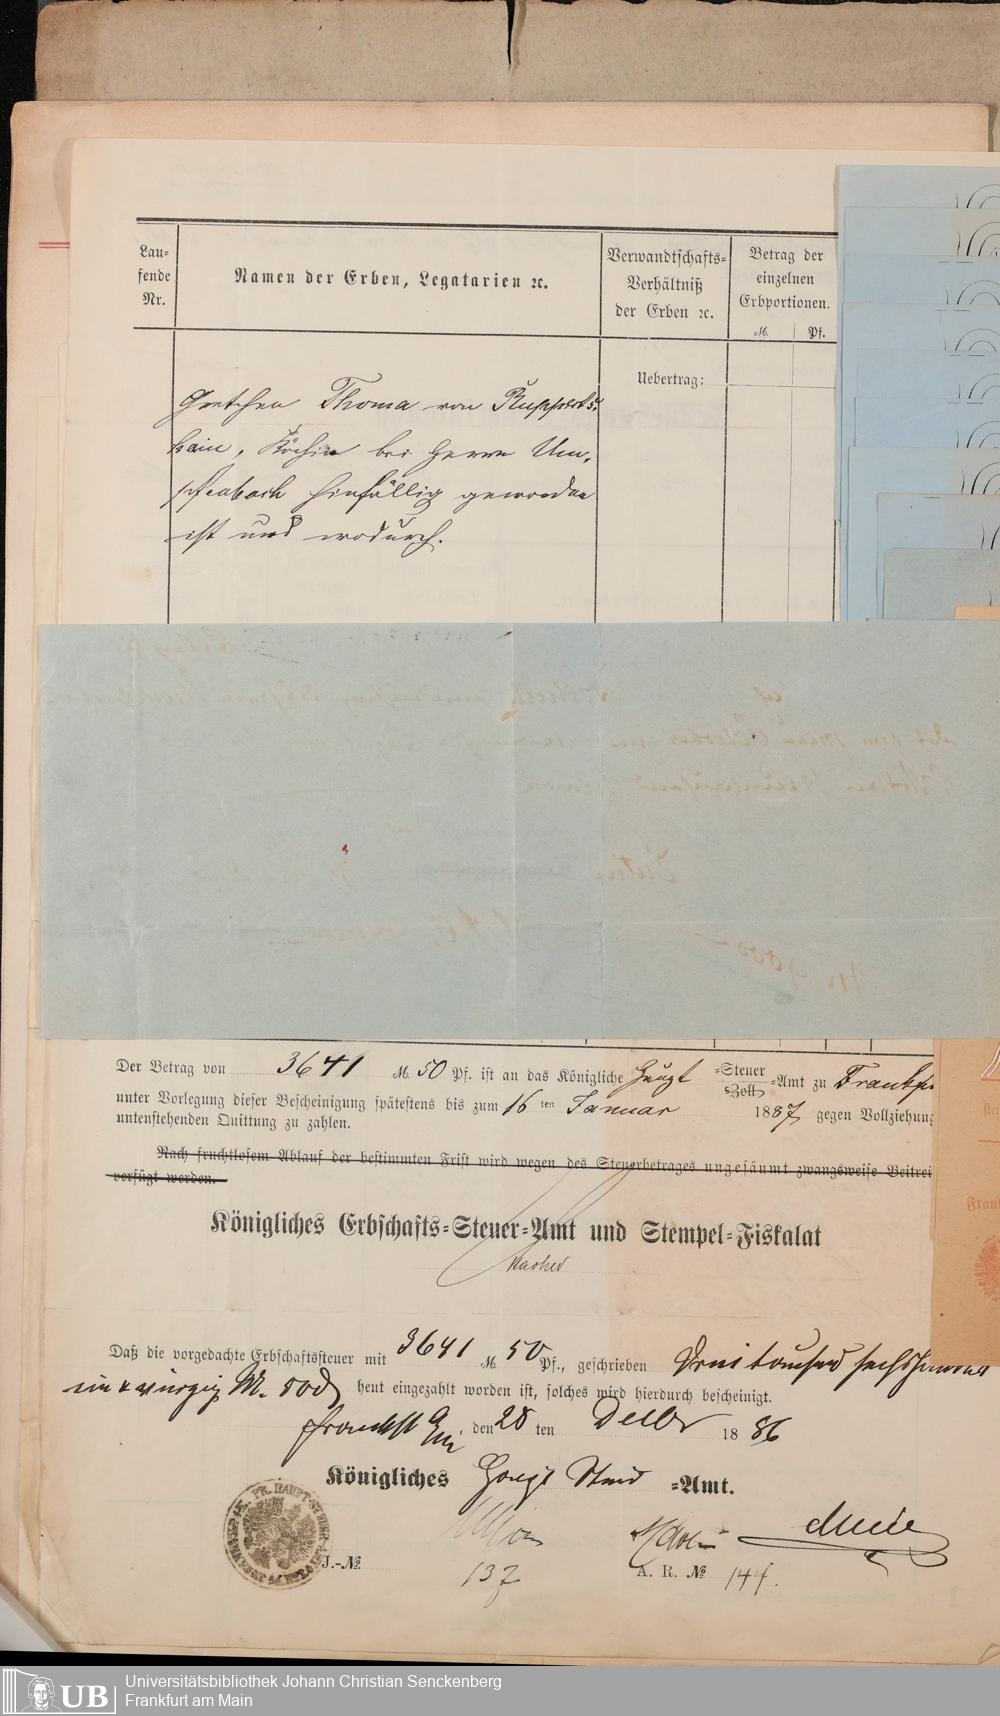 Lau-
fende
Nr.
Namen der Erben, Legatarien ꝛc.
Verwandtschafts-
Verhältniß
der Erben ꝛc.
Betrag der
einzelnen
Erbportionen.
M. Pf.
Uebertrag:
Gretchen Thoma von Rupperts-
hain, Köchin bei Herrn Um-
pfenbach hinfällig geworden
ist und wodurch.
Der Betrag von 3641 M. 50 Pf. ist an das Königliche Haupt =Steuer/Zoll=Amt zu Frankfu
unter Vorlegung dieser Bescheinigung spätestens bis zum 16 ten Januar 1887 gegen Vollziehung
untenstehenden Quittung zu zahlen.
Nach fruchtlosem Ablauf der bestimmten Frist wird wegen des Steuerbetrages ungesäumt zwangsweise Beitrei
verfügt werden.
Königliches Erbschafts-Steuer-Amt und Stempel-Fiskalat
Daß die vorgedachte Erbschaftssteuer mit 3641 M. 50 Pf., geschrieben Dreitausend sechshundert
ein & vierzig M. 50 heut eingezahlt worden ist, solches wird hierdurch bescheinigt.
den 28 ten Decbr 1886
Königliches Haupt Steuer =Amt.
J.-№ 137
A. R. № 144.
UB
Universitätsbibliothek Johann Christian Senckenberg
Frankfurt am Main